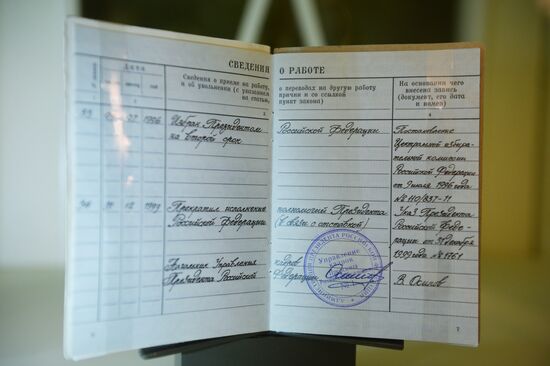 СВЕДЕНИЯ О РАБОТЕ
Дата
Сведения о приеме на работу,
и об увольнении (с указанием
на статью,
о переводах на другую работу
причин и со ссылкой
пункт закона)
На основании чего
внесена запись
(документ, его дата
и номер)
33 07 1996 Избран Президентом Российской Федерации
на второй срок
Постановление
Центральной избира-
тельной комиссии
Российской Федерации
от 9 июля 1996 года
№ 110/837-II
34 31 12 1999 Прекратил исполнение полномочий Президента
Российской Федерации (в связи с отставкой)
Указ Президента
Российской Феде-
рации от 31 декабря
1999 года № 1761
Начальник Управления кадров
Президента Российской Федерации
В. Осипов
Управление